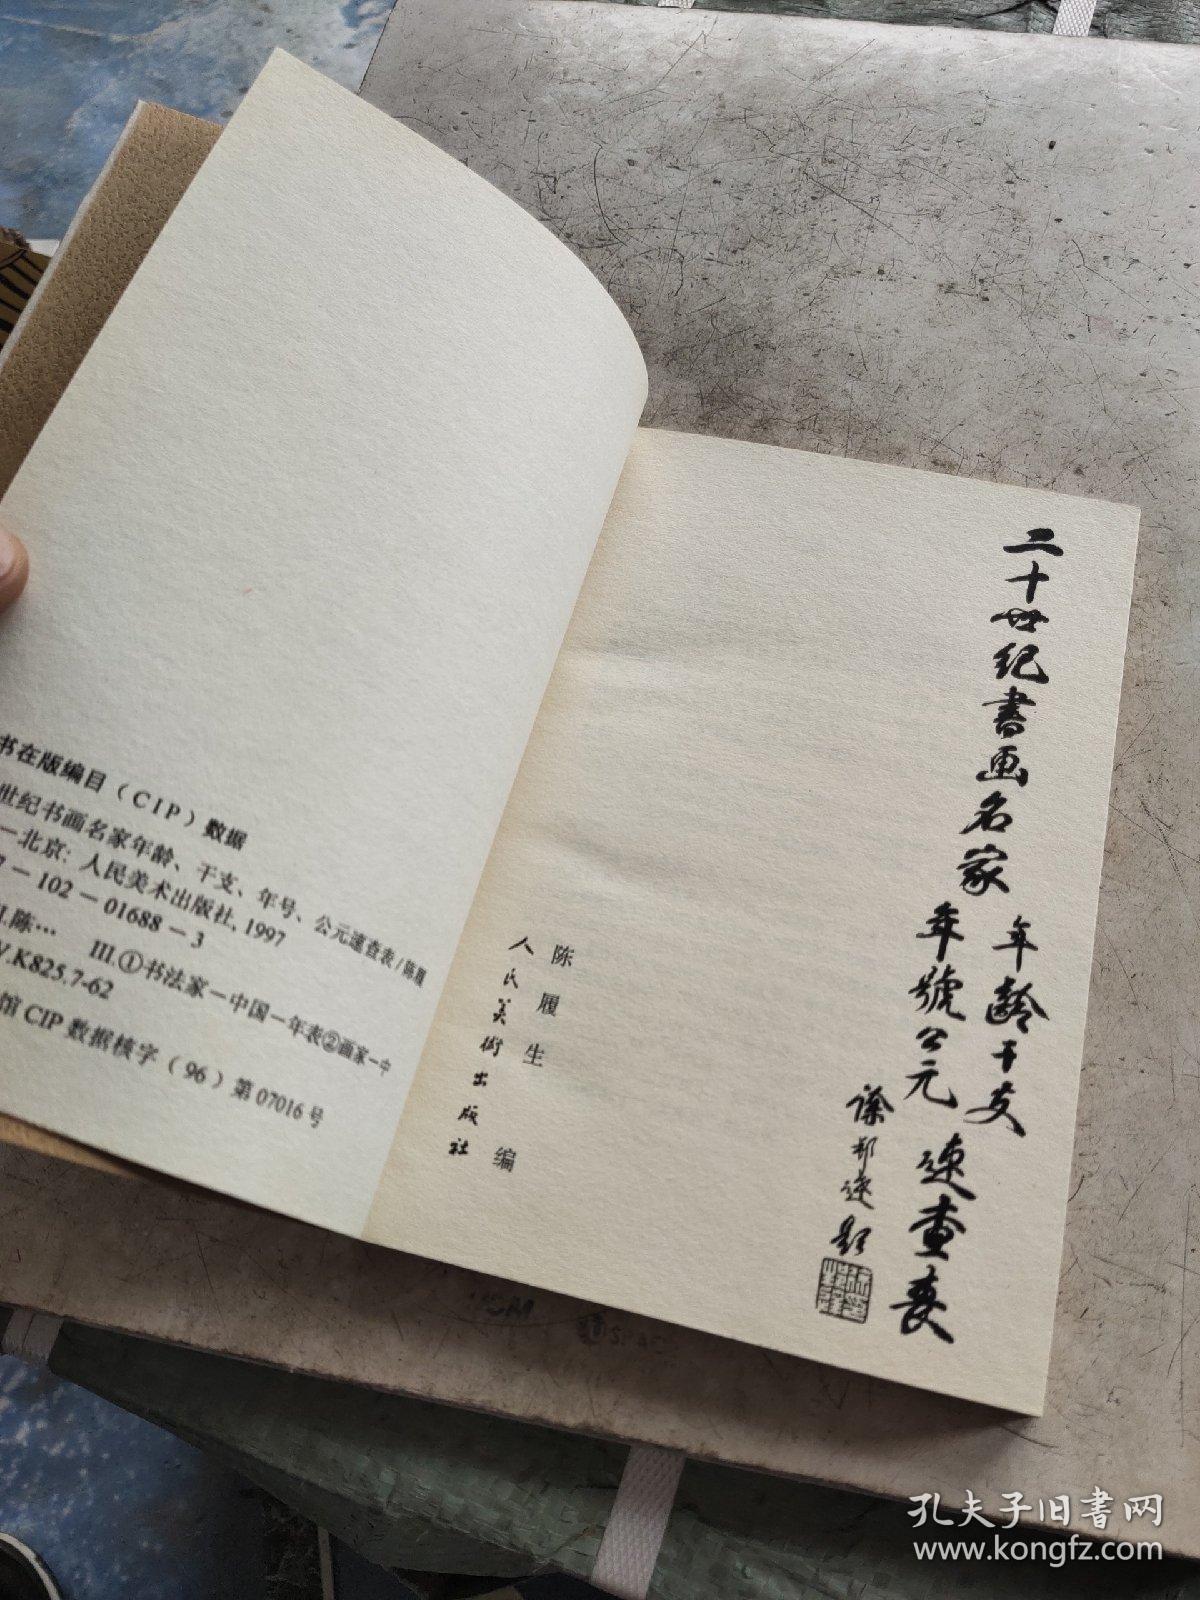 书在版编目(CIP)数据
世纪书画名家年龄、干支、年号、公元速查表/陈履
—北京:人民美术出版社,1997
7-102-01688-3
Ⅰ.陈… Ⅲ.①书法家—中国—年表②画家—中
Ⅳ.K825.7-62
馆CIP数据核字(96)第07016号
二十世纪書画名家
年齡干支
年號公元
速查表
徐邦达題
陈履生 编
人民美術出版社
孔夫子旧書网
www.kongfz.com